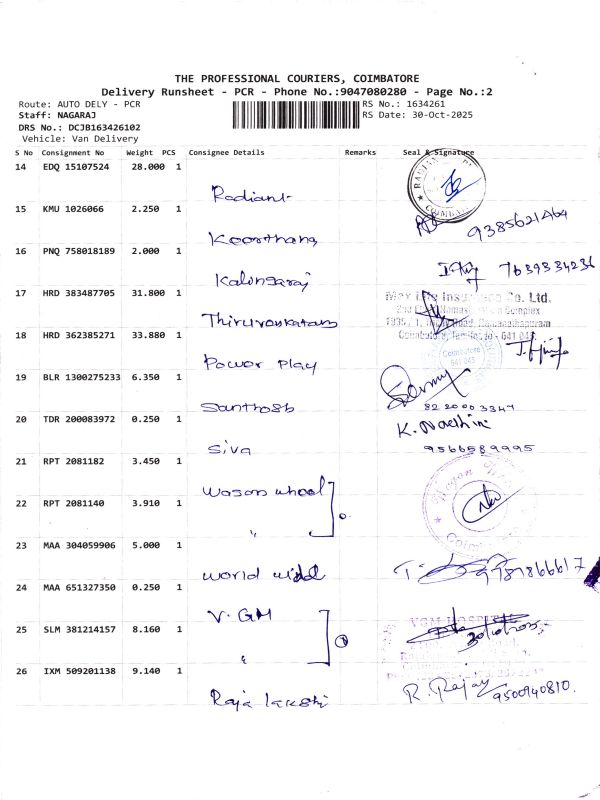 THE PROFESSIONAL COURIERS, COIMBATORE
Delivery Runsheet - PCR - Phone No.:9047080280 - Page No.:2
Route: AUTO DELY - PCR RS No.: 1634261
Staff: NAGARAJ RS Date: 30-Oct-2025
DRS No.: DCJB163426102
Vehicle: Van Delivery
S No Consignment No Weight PCS Consignee Details Remarks Seal & Signature
14 EDQ 15107524 28.000 1
Radiant
15 KMU 1026066 2.250 1
Koorthang 9385621464
16 PNQ 758018189 2.000 1
Kalingaraj 7639334236
17 HRD 383487705 31.800 1
Thiruvenkatam
18 HRD 362385271 33.880 1
Power Play
19 BLR 1300275233 6.350 1
Santhosh 8220003347
20 TDR 200083972 0.250 1 K. Naethini
Siva 9566589995
21 RPT 2081182 3.450 1
Wagon wheel
22 RPT 2081140 3.910 1
"
23 MAA 304059906 5.000 1
World widd
24 MAA 651327350 0.250 1
V. GM
25 SLM 381214157 8.160 1
"
26 IXM 509201138 9.140 1
Raja lakshi R. Rajay 9500940810.